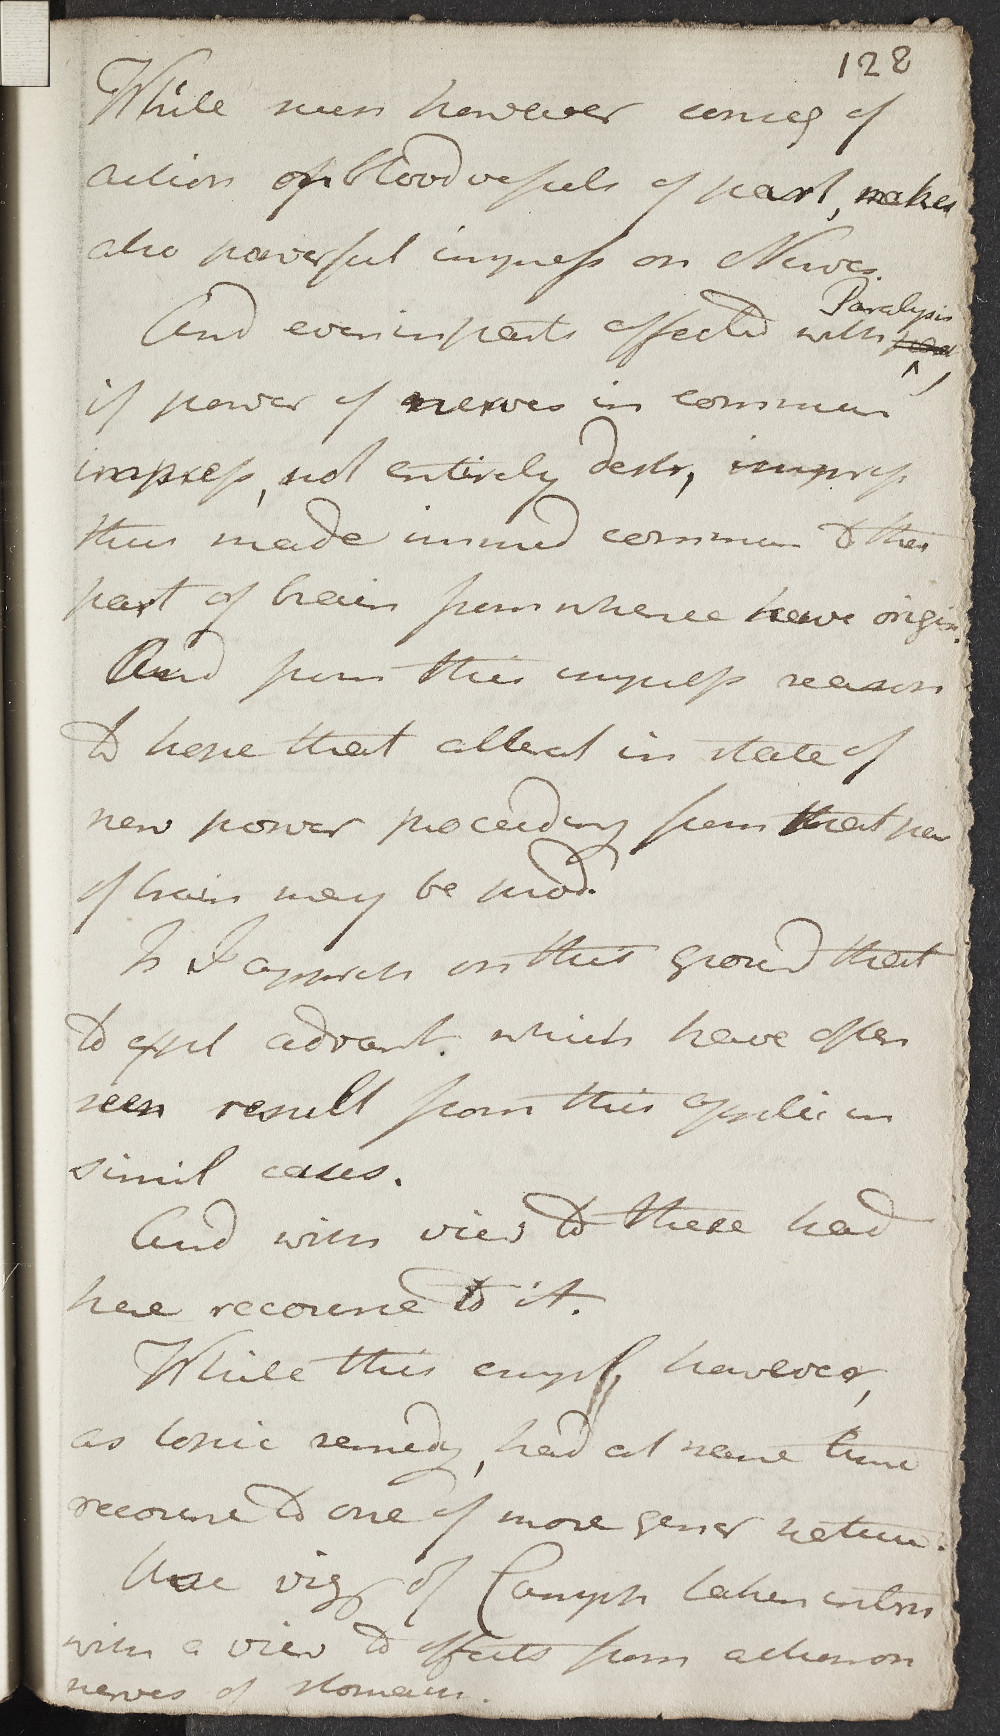 128
While mers however conseq of
action of bloodvessels of part, makes
also powerful impress on Nerves.
And even in parts affected with Paralysis,
if power of nerves in commun
impress, not entirely destr, impress
thus made immed commun to their
part of brain from whence have origin.
And from this impress reason
to hope that alterat in state of
nerv power proceeding from that par
of brain may be prod.
Is I appreh on this ground that
to expl advant. which have often
seen result from this applic in
simil cases.
And with view to these had
here recourse to it.
While this empl, however,
as tonic remedy, had at same time
recourse to one of more gener nature.
viz of Camph taken intern
with a view to effects from action on
nerves of stomach.